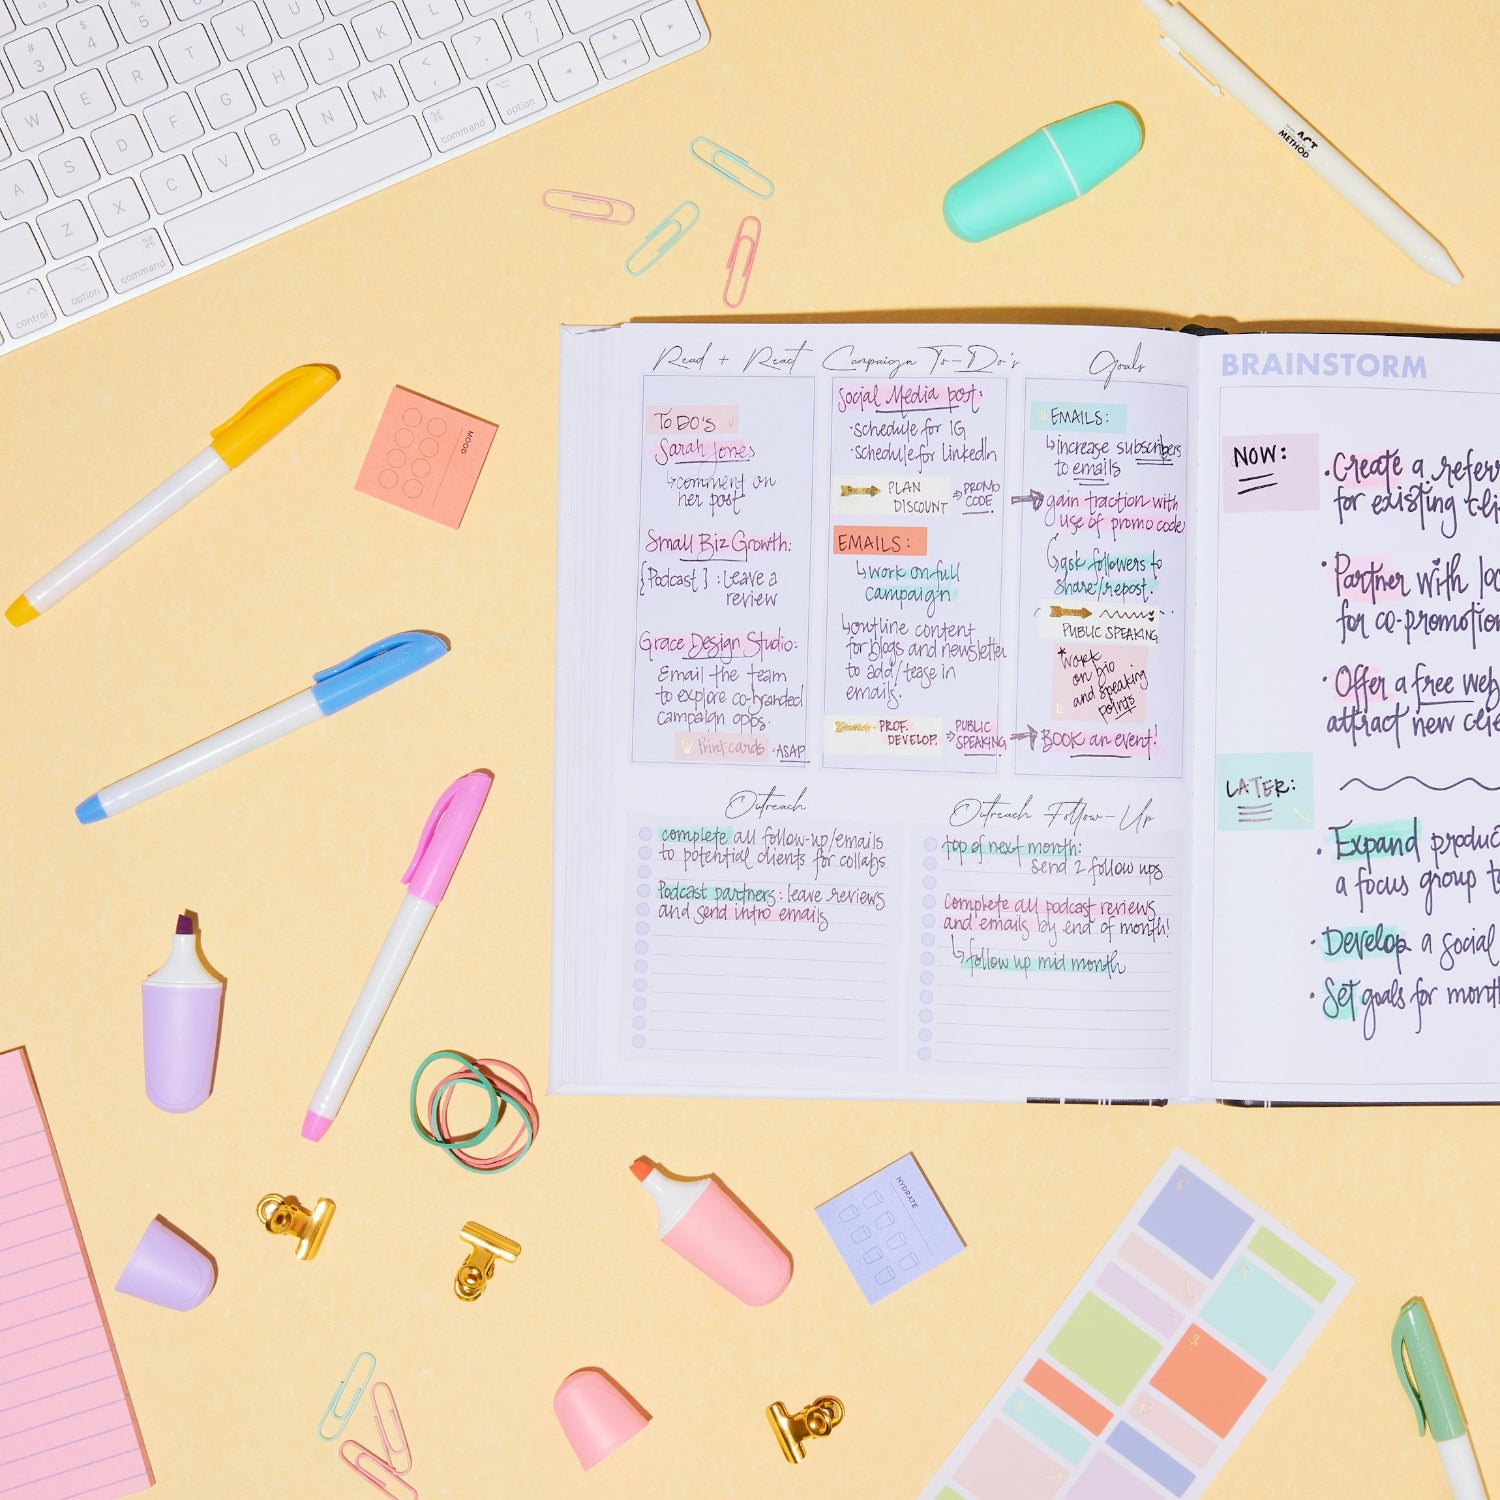 # 3
$ 4
% 5
W
E
R
T
Y
U
I
O
P
A
S
D
F
G
H
J
K
L
Z
X
C
V
B
N
M
< ,
> .
? /
control
option
command
command
option
ACT
METHOD
MOOD
Read + React
TO DO'S
Sarah Jones
comment on
her post
Small Biz Growth:
{Podcast} : Leave a
review
Grace Design Studio:
Email the team
to explore co-branded
campaign opps.
Print cards - ASAP
Campaign To-Do's
Social Media post:
·schedule for IG
·schedule for LinkedIn
PLAN
DISCOUNT
PROMO
CODE
EMAILS:
work on full
campaign
outline content
for blogs and newsletter
to add/tease in
emails.
PROF.
DEVELOP.
PUBLIC
SPEAKING
Goals
EMAILS:
increase subscribers
to emails
gain traction with
use of promo code
ask followers to
share/repost.
PUBLIC SPEAKING
*Work
on bio
and speaking
points
BOOK an event!
Outreach
complete all follow-up/emails
to potential clients for collabs
Podcast partners: leave reviews
and send intro emails
Outreach Follow-Up
top of next month:
send 2 follow ups
Complete all podcast reviews
and emails by end of month!
follow up mid month
BRAINSTORM
NOW:
·Create a
for existing
·Partner with
for co-promotion
·Offer a free
attract new
LATER:
·Expand
a focus group
·Develop a social
·Set goals for
HYDRATE